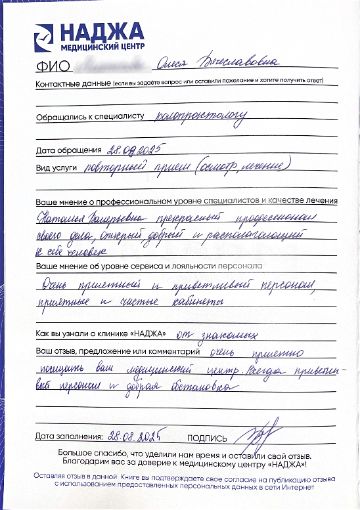 НАДЖА
МЕДИЦИНСКИЙ ЦЕНТР
ФИО Олеся Вячеславовна
Контактные данные (если вы задаёте вопрос или оставили пожелание и хотите получить ответ)
Обращались к специалисту колопроктологу
Дата обращения 28.08.2025
Вид услуги повторный прием (осмотр, мнение)
Ваше мнение о профессиональном уровне специалистов и качестве лечения
Наталья Валерьевна прекрасный профессионал
своего дела, открытый, добрый и располагающий
к себе человек
Ваше мнение об уровне сервиса и лояльности персонала
Очень приятный и приветливый персонал,
приятные и чистые кабинеты
Как вы узнали о клинике «НАДЖА» от знакомых
Ваш отзыв, предложение или комментарий очень приятно
посещать ваш медицинский центр. Всегда приветли-
вый персонал и добрая обстановка
Дата заполнения: 28.08.2025 ПОДПИСЬ
Большое спасибо, что уделили нам время и оставили свой отзыв.
Благодарим вас за доверие к медицинскому центру «НАДЖА»!
Оставляя отзыв в данной Книге вы подтверждаете свое согласие на публикацию отзыва
с использованием предоставленных персональных данных в сети Интернет